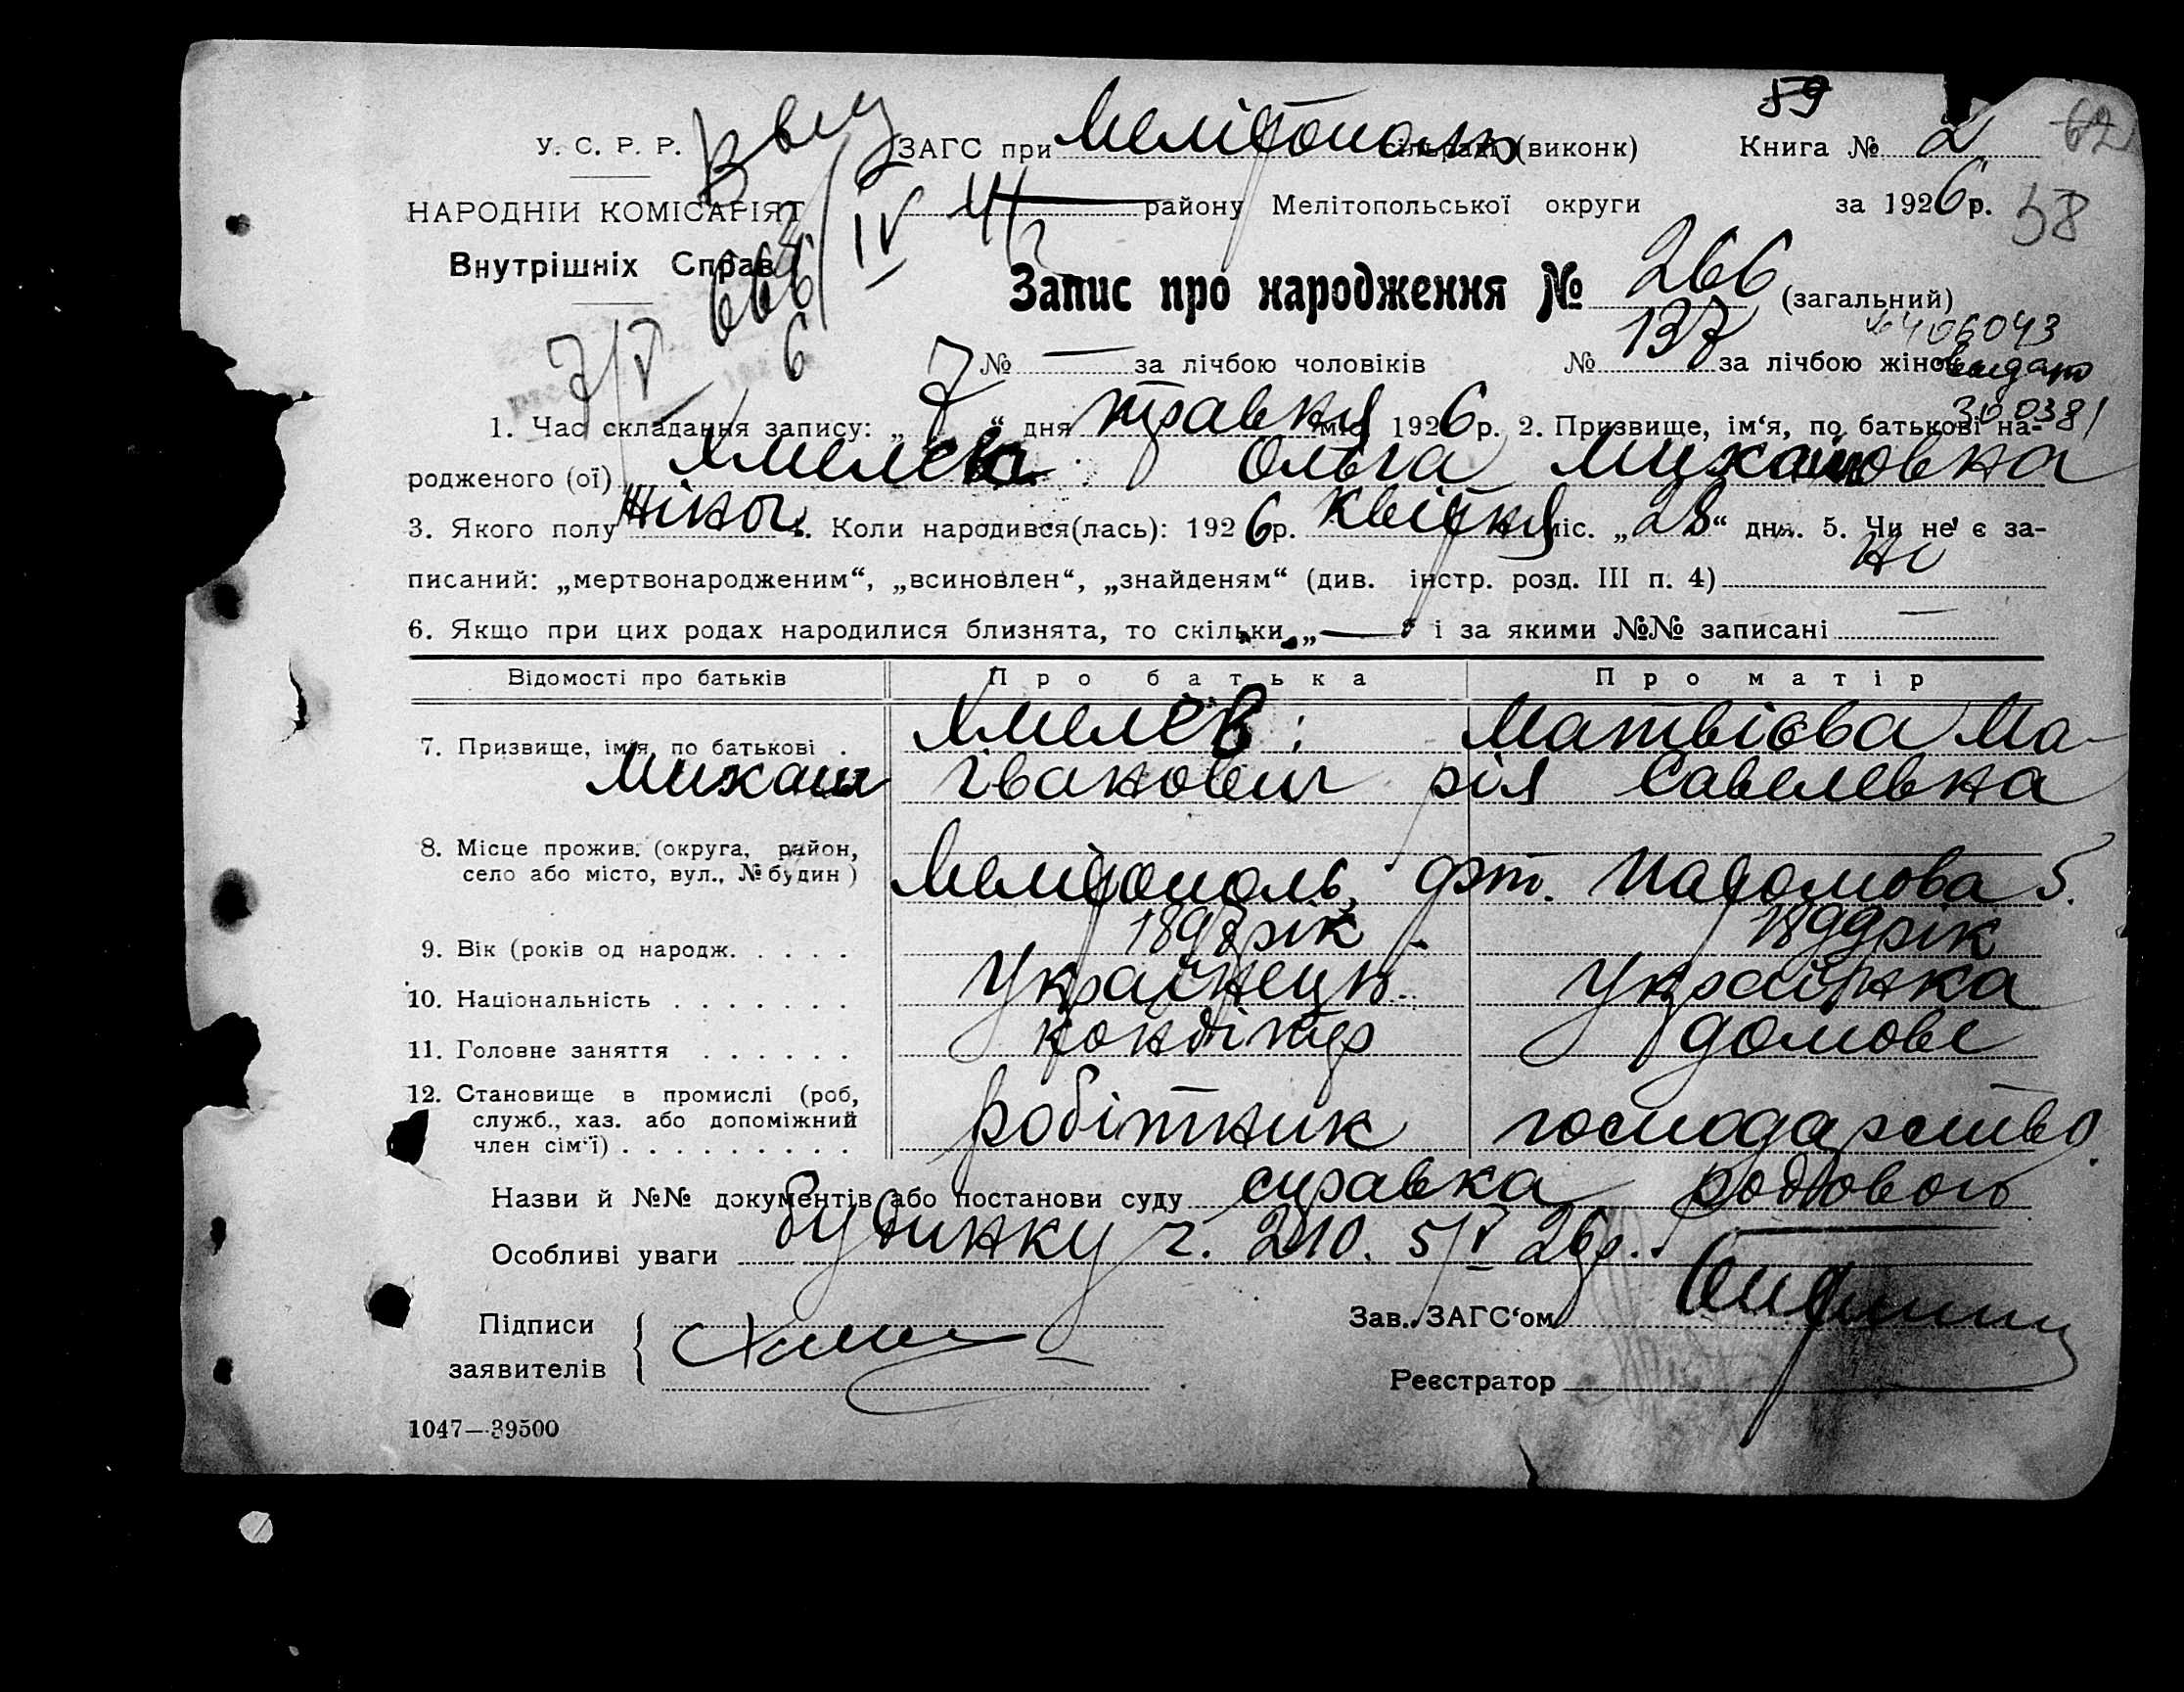 59
У. С. Р. Р. ЗАГС при Мелітополь сільраді (виконк) Книга № 2 62
НАРОДНІЙ КОМІСАРІЯТ району Мелітопольської округи за 1926 р. 58
Внутрішніх Справ
Запис про народження № 266 (загальний)
7/V № — за лічбою чоловіків № 137 за лічбою жінок
видано
1. Час складання запису: „ 7 “ дня травня міс. 1926 р. 2. Призвище, ім‘я, по батькові на-
родженого (ої) Хмелева Ольга Михайловна
3. Якого полу жіноч. 4. Коли народився(лась): 1926 р. квітня міс. „28“ дня. 5. Чи не є за-
писаний: „мертвонародженим“, „всиновлен“, „знайденям“ (див. інстр. розд. III п. 4) ні
6. Якщо при цих родах народилися близнята, то скільки „—“ і за якими №№ записані —
Відомості про батьків Про батька Про матір
7. Призвище, ім‘я, по батькові . Хмелєв Матвієва Ма-
Михаил Іванович рія Савелевна
8. Місце прожив. (округа, район,
село або місто, вул., № будин) Мелітополь, 5.
9. Вік (років од народж. . . . . 1898 рік 1899 рік
10. Національність . . . . . . . Українець Українка
11. Головне заняття . . . . . . кондітер домове
12. Становище в промислі (роб,
служб., хаз. або допоміжний
член сім‘ї) . . . . . . . . . робітник господарство
Назви й №№ документів або постанови суду справка родового
Особливі уваги будинку ч. 210. 5/V 26 р.
Підписи
заявителів
Зав. ЗАГС‘ом
Реєстратор
1047—39500